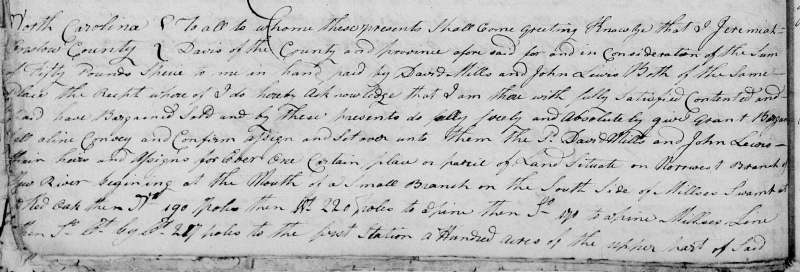 North Carolina } To all to whome these presents Shall Come Greeting Know ye that I Jeremiah
Onslow County } Davis of the County and province afore said for and in Consideration of the Sum
of Fifty Pounds to me in hand paid by David Mills and John Lewis Both of the Same
place the Recpt where of I do hereby Acknowlidge that I am there with fully Satisfied Contented and
paid have Bargained Sold and by These presents do fully freely and Absolutely give Grant Bargan
Sell aline Convey and Confirm assign and Set over unto them the Sd. David Mills and John Lewis
thair heirs and Assigns for Ever One Certain place or parcel of Land Situate on Norwest Branch of
New River begining at the Mouth of a Small Branch on the South Side of Millses Swamp at
a Red Oak then 190 poles then Wt. 220 poles to a pine then So. 190 to a pine Millses Line
then So. Et. by Et. 217 poles to the first Station a Hundred acres of the upper part of Said